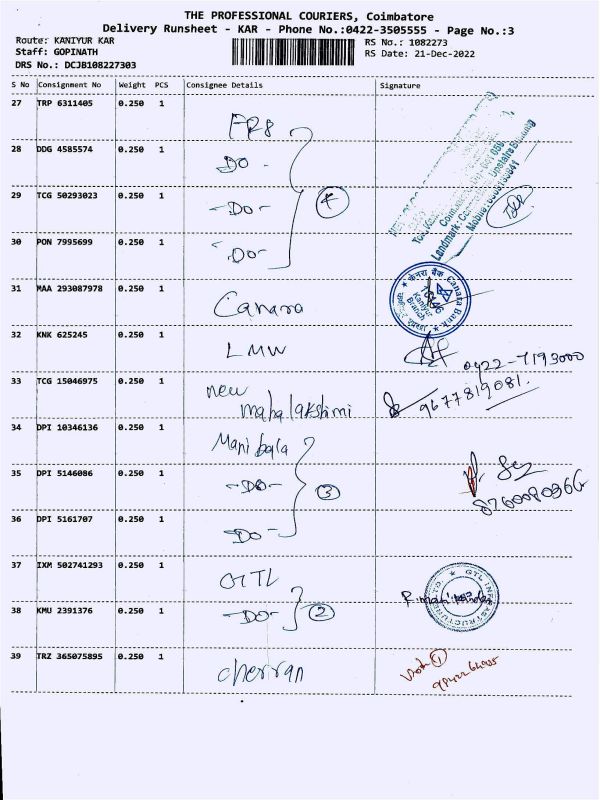 THE PROFESSIONAL COURIERS, Coimbatore
Delivery Runsheet - KAR - Phone No.:0422-3505555 - Page No.:3
Route: KANIYUR KAR
RS No.: 1082273
Staff: GOPINATH
RS Date: 21-Dec-2022
DRS No.: DCJB108227303
S No Consignment No Weight PCS Consignee Details Signature
27 TRP 6311405 0.250 1
28 DDG 4585574 0.250 1 DO -
29 TCG 50293023 0.250 1 -DO- 4
30 PON 7995699 0.250 1 -DO-
31 MAA 293087978 0.250 1 Canara
केनरा बैंक Canara Bank
Kaniyur
Branch
32 KNK 625245 0.250 1 LMW 0422-7193000
33 TCG 15046975 0.250 1 new
mahalakshmi 9677819081.
34 DPI 10346136 0.250 1 Manibala
35 DPI 5146086 0.250 1 -DO- 3
36 DPI 5161707 0.250 1 -DO-
37 IXM 502741293 0.250 1 GTL
GTL INFRASTRUCTURE LTD.
38 KMU 2391376 0.250 1 -DO- 2
39 TRZ 365075895 0.250 1 cherran